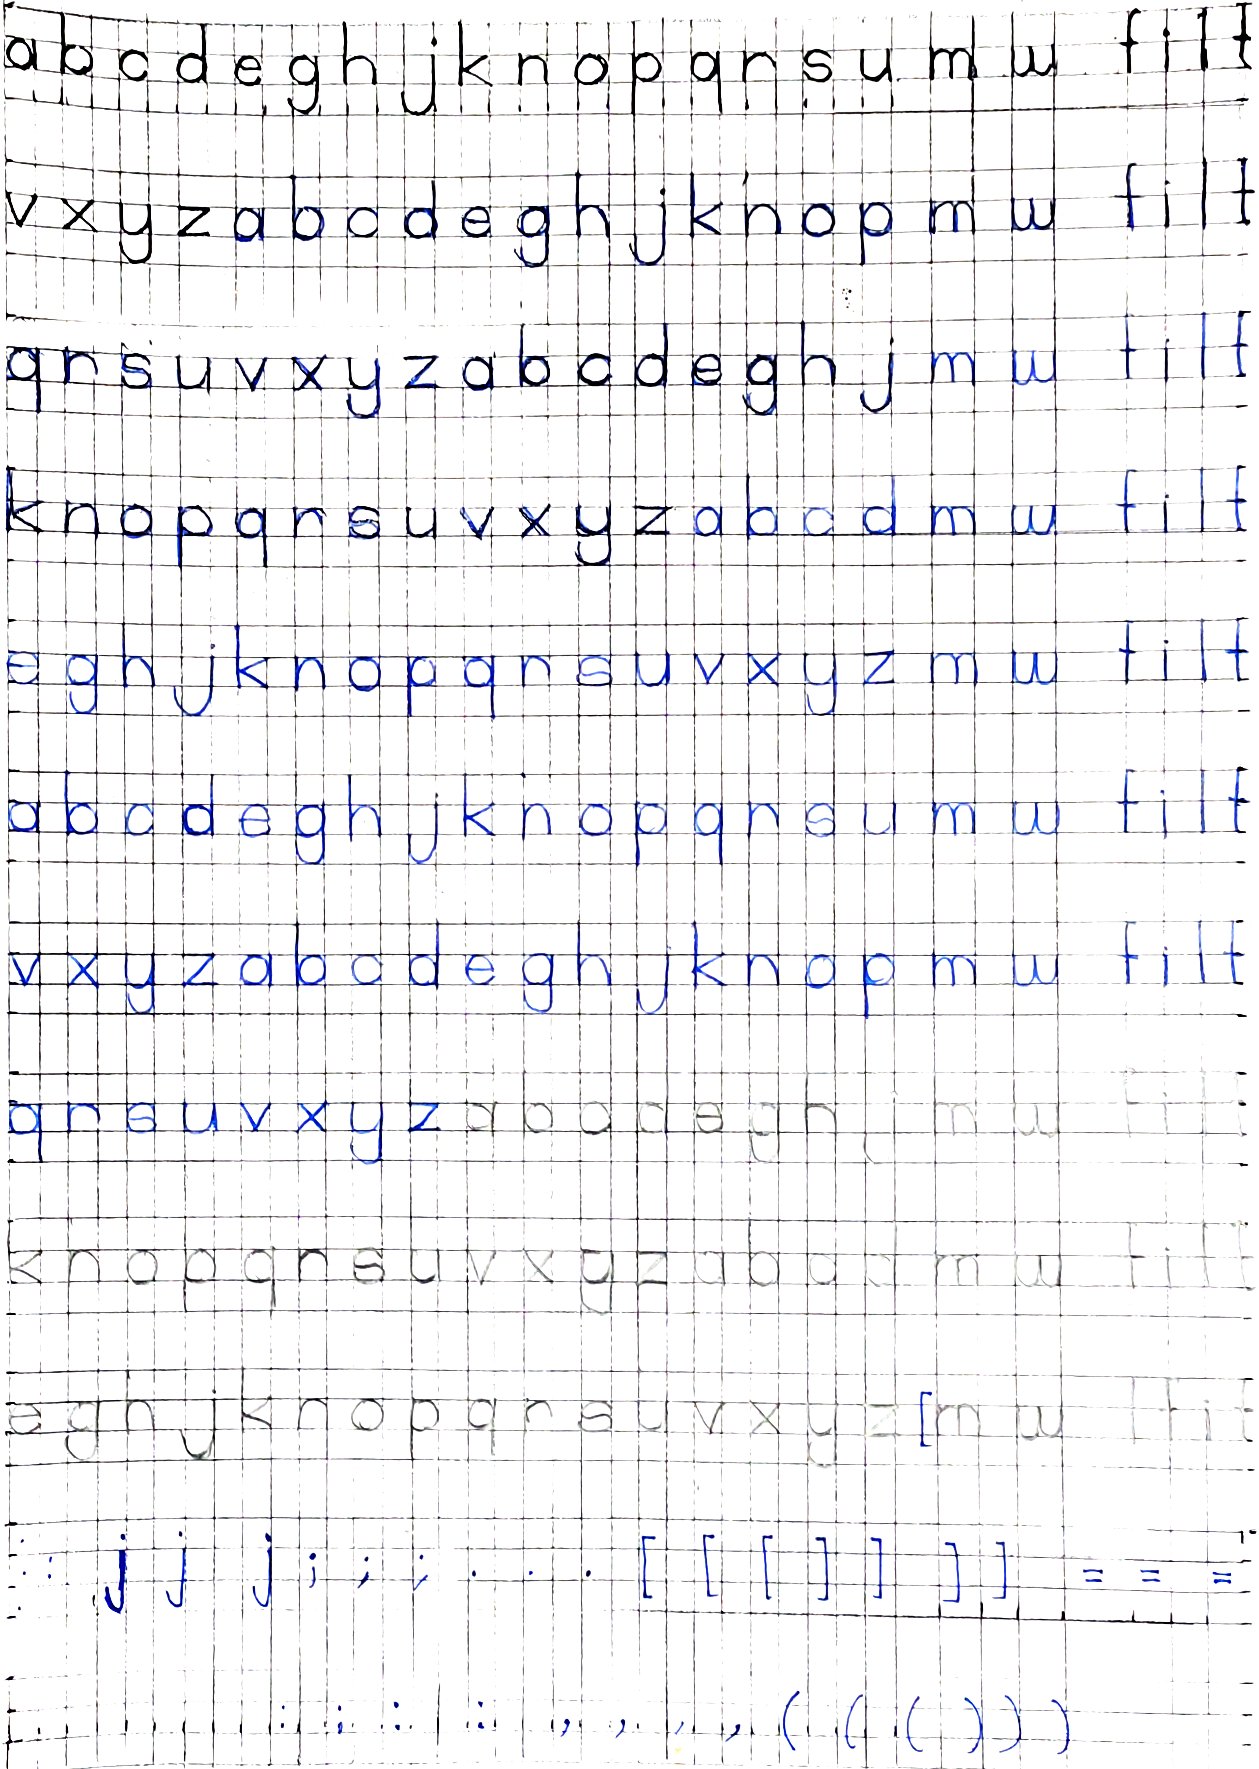 a b c d e g h j k n o p q r s u m w f i l t
v x y z a b c d e g h j k n o p m w f i l t
q r s u v x y z a b c d e g h j m w f i l t
k n o p q r s u v x y z a b c d m w f i l t
e g h j k n o p q r s u v x y z m w f i l t
a b c d e g h j k n o p q r s u m w f i l t
v x y z a b c d e g h j k n o p m w f i l t
q r s u v x y z a b c d e g h j m w f i l t
k n o p q r s u v x y z a b c d m w f i l t
e g h j k n o p q r s u v x y z [ m w
: : j j j ; ; ; . . . [ [ [ ] ] ] ] = = =
: ; : : , , , , ( ( ( ) ) )